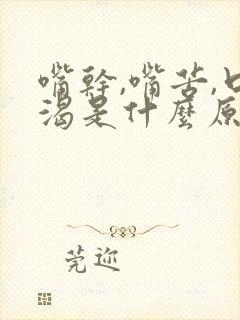 嘴幹,嘴苦,口
渴是什麼原
莞迩